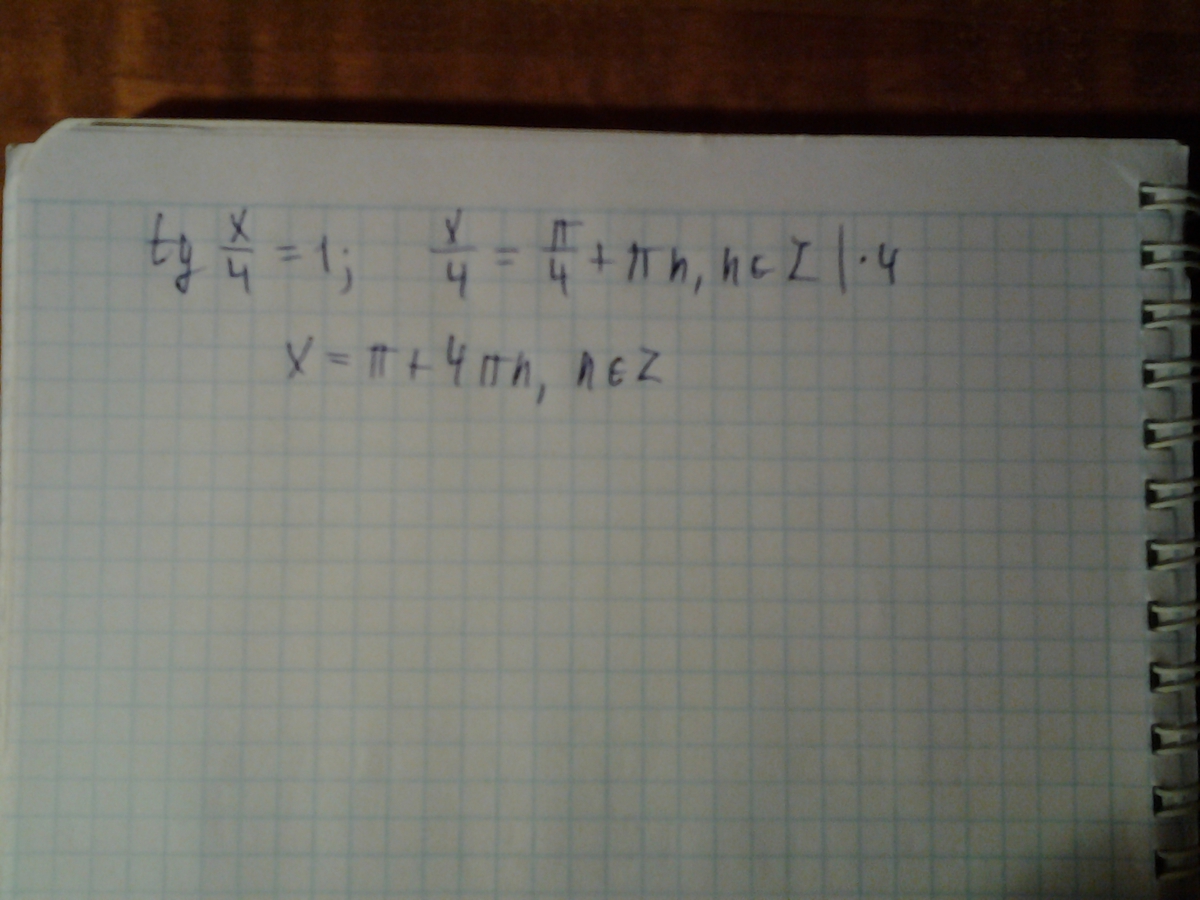 tg x/4 = 1; x/4 = π/4 + πn, n ∈ Z | · 4
x = π + 4πn, n ∈ Z